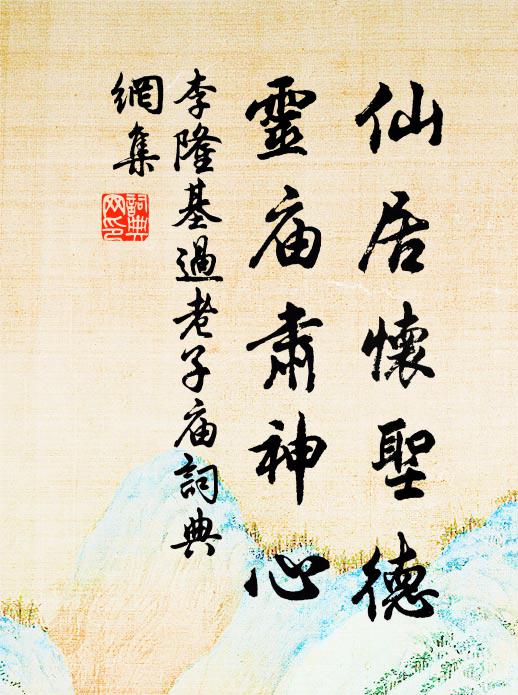 仙居懷聖德
靈庙肅神心
李隆基過老子庙詞典
網集
詞典
网印